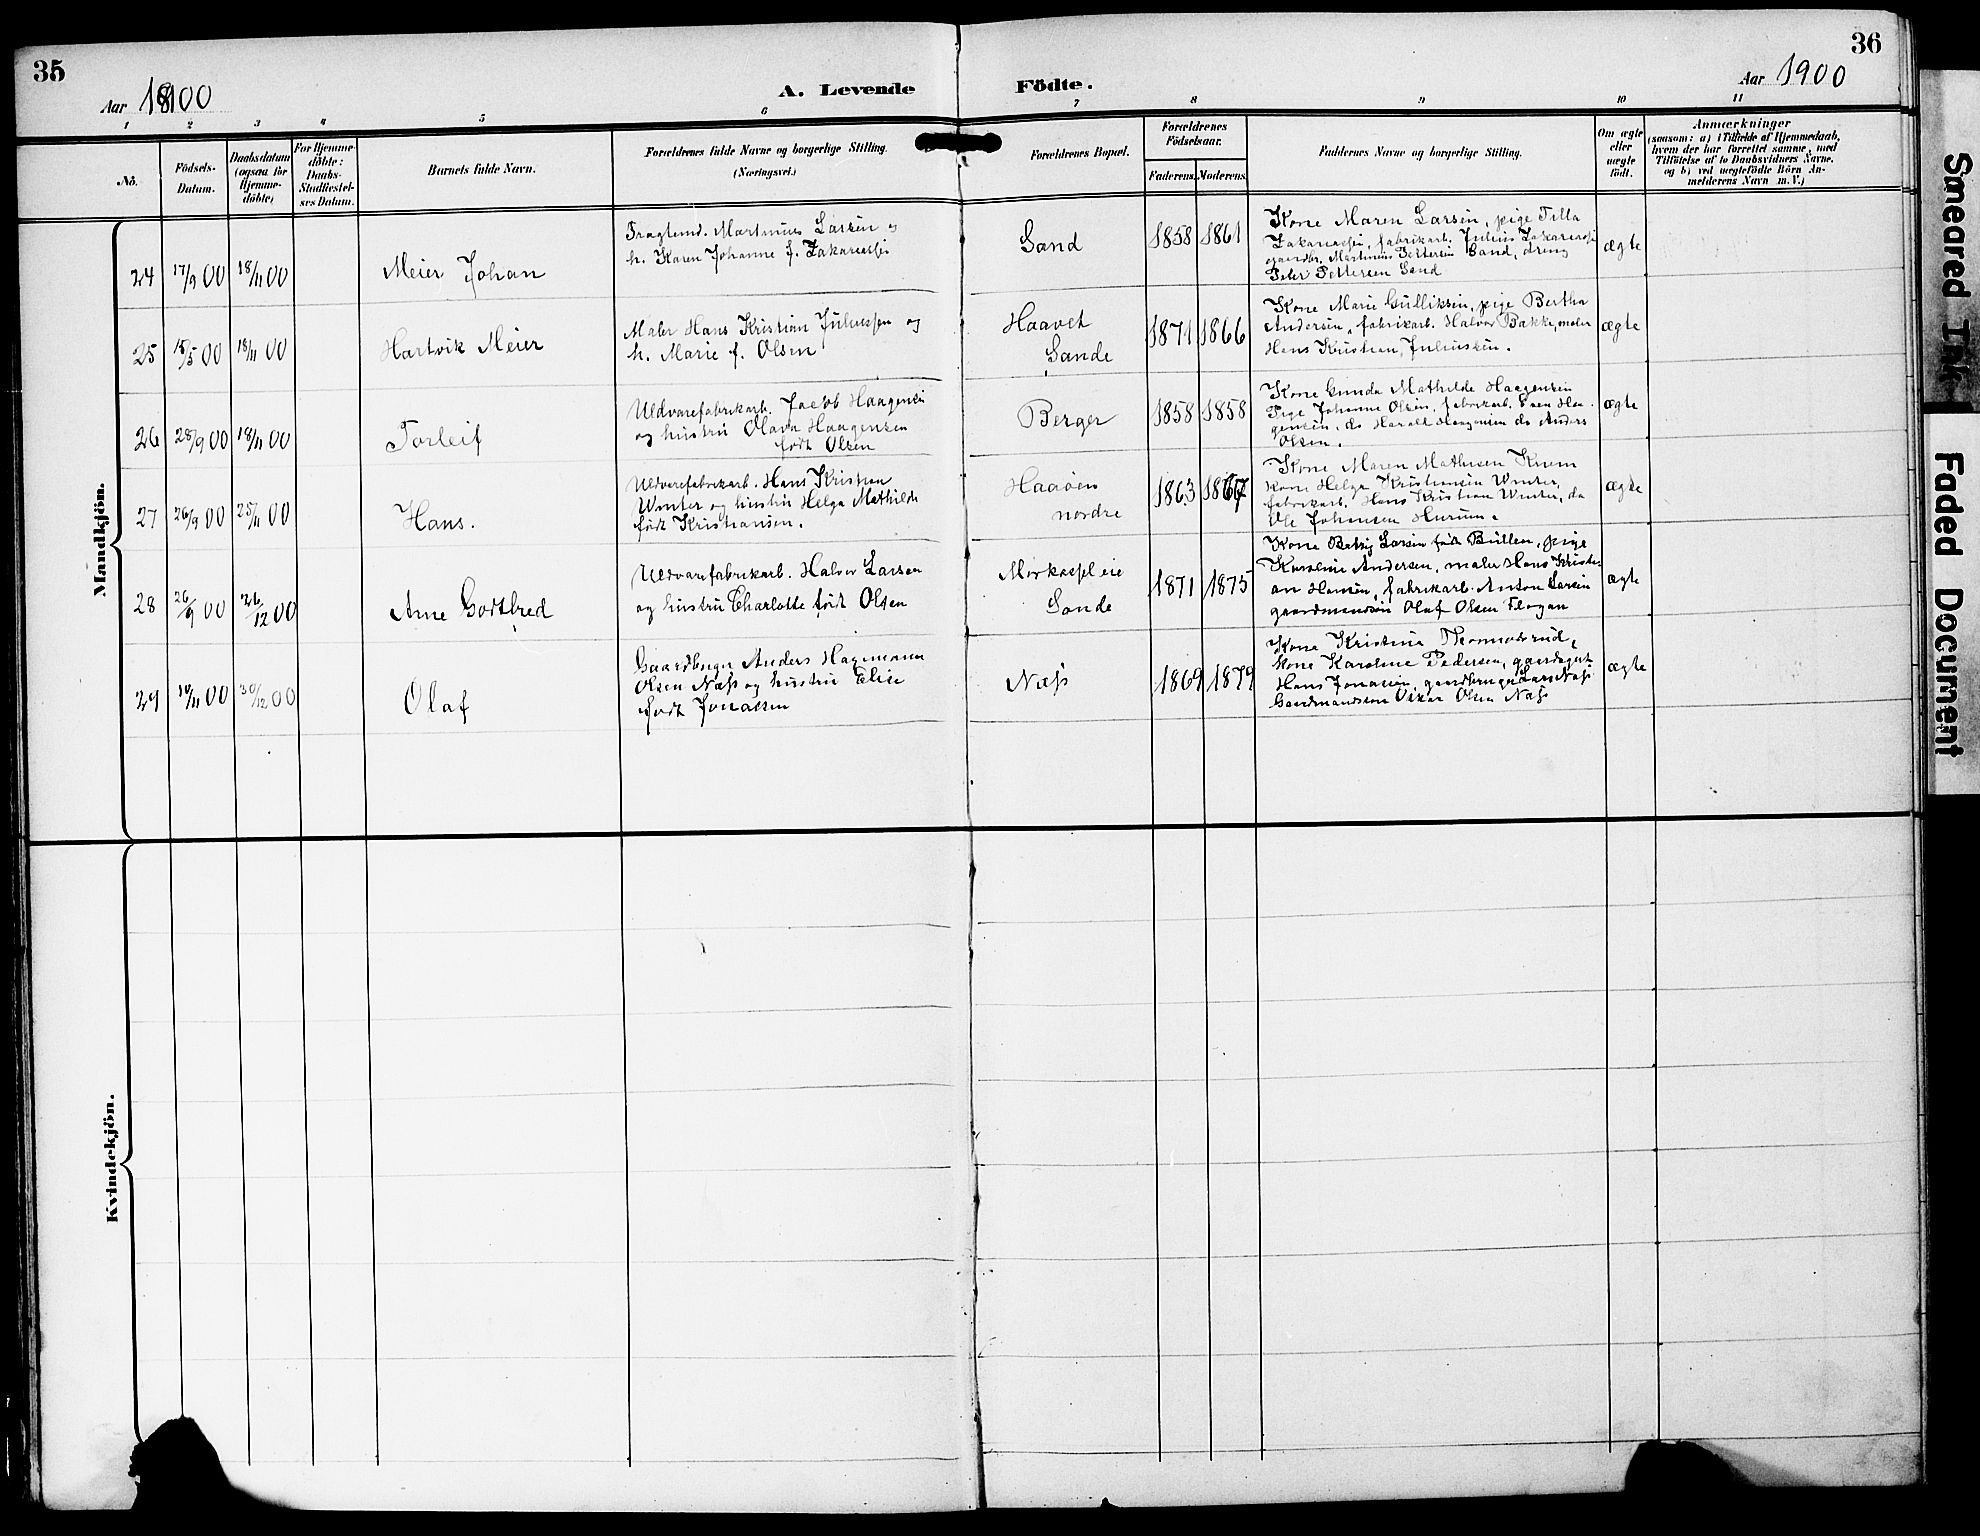 35
36
Aar 1900
A. Levende
Födte.
Aar 1900
1
2
3
4
5
6
7
8
9
10
11
No.
Födsels-
Datum.
Daabsdatum
(ogsaa for
Hjemme-
döbte)
For Hjemme-
döbte:
Daabs-
Stadfæstel-
ses Datum.
Barnets fulde Navn.
Forældrenes fulde Navne og borgerlige Stilling.
(Næringsvei.)
Forældrenes Bopæl.
Forældrenes
Födselsaar.
Faderens.
Moderens.
Faddernes Navne og borgerlige Stilling.
Om ægte
eller
uægte
födt.
Anmærkninger
(saasom: a) i Tilfælde af Hjemmedaab,
hvem der har forrettet samme, med
Tilföielse af to Daabsvidners Navne,
og b) ved uægtefödte Börn An-
melderens Navn m. V.)
Mandkjön.
24
17/9 00
18/11 00
Meier Johan
Fragtemd. Martinius Larsen og
h. Karen Johanne f. Zakariassen
Sand
1858
1861
Kone Maren Larsen, pige Tilla
Zakariassen, fabrikarb. Julius Zakariassen
gaardbr. Martinius Pettersen Sand, dreng
Peter Pettersen Sand
ægte
25
18/5 00
18/11 00
Hartvik Meier
Maler Hans Kristian Juliussen og
h. Marie f. Olsen
Haavet
Sande
1871
1866
Kone Marie Gulliksen, pige Bertha
Andersen, fabrikarb. Halvor Bakke, maler
Hans Kristian Juliussen.
ægte
26
28/9 00
18/11 00
Torleif
Uldvarefabrikarb. Jacob Haagensen
og hustru Olava Haagensen
født Olsen
Berger
1858
1858
Kone Gunda Mathilde Haagensen
Pige Johanne Olsen, fabrikarb. Even Haa-
gensen, do Harald Haagensen do Anders
Olsen.
ægte
27
26/9 00
25/11 00
Hans.
Uldvarefabrikarb. Hans Kristian
Winter og hustru Helga Mathilde
født Kristiansen.
Haaøen
nordre
1863
1867
Kone Maren Mathisen Knem
kone Helga Kristiansen Winter,
fabrikarb. Hans Kristian Winter, do
Ole Johansen Hurum.
ægte
28
26/9 00
26/12 00
Arne Godtfred
Uldvarefabrikarb. Halvor Larsen
og hustru Charlotte født Olsen
Sande
1871
1875
Kone Betsy Larsen født Bullen, pige
Karoline Andersen, maler Hans Kristi-
an Hansen, fabrikarb. Anton Larsen
gaardmandssøn Olaf Olsen Flogan
ægte
29
10/11 00
30/12 00
Olaf
Gaardbruger Anders Hagmann
Olsen Næss og hustru Elise
født Jonassen
Næss
1869
1879
Kone Kristina
kone Karoline Pedersen, gaardsgut
Hans Jonassen, gaardbruger Lars Næss
Gaardmandssøn Oskar Olsen Næss
ægte
Kvindekjön.
Smeared Ink
Faded Document